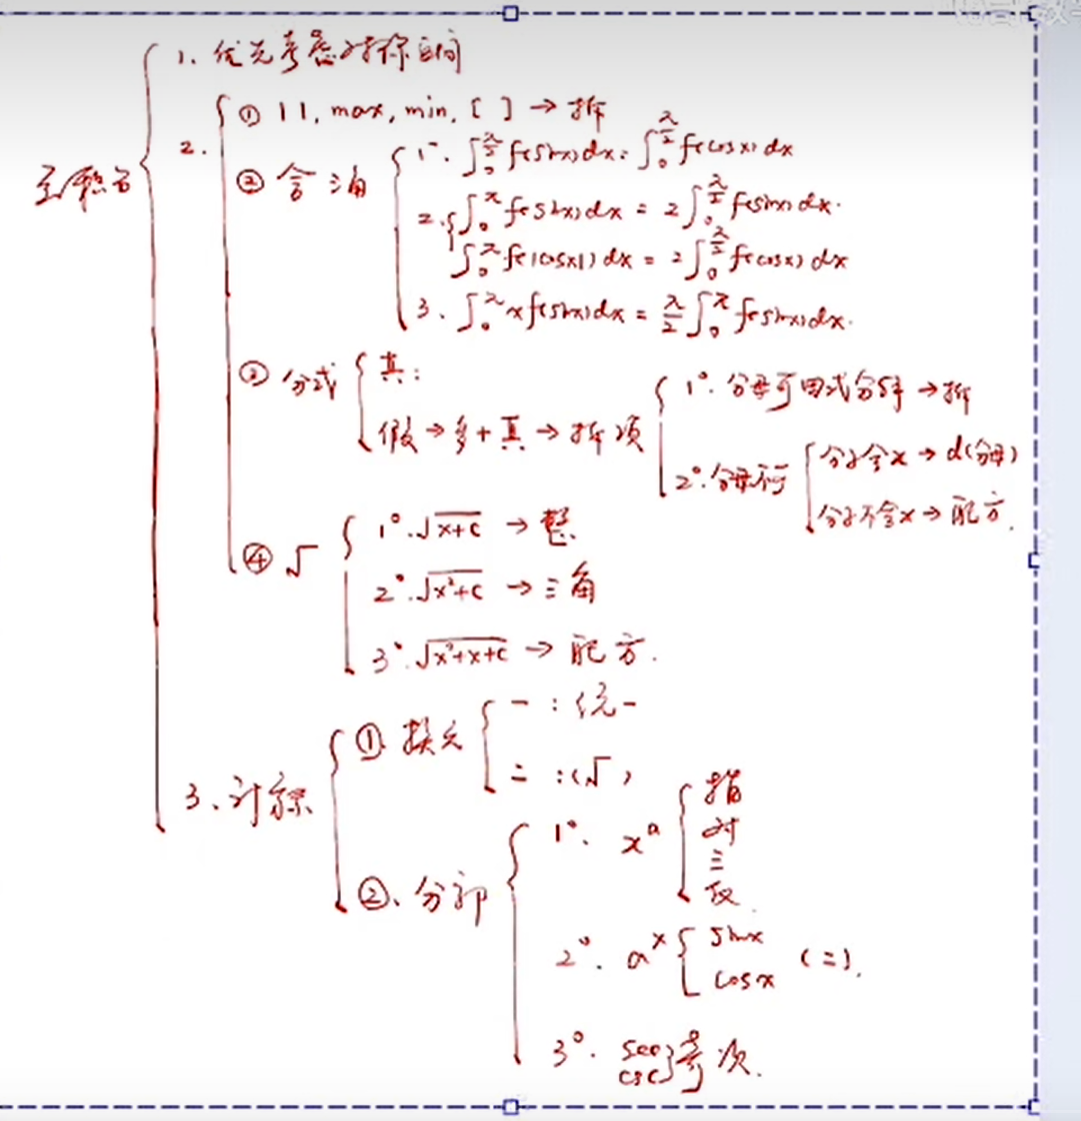 定积分
1. 优先考虑对称区间
2.
① | |, max, min, [ ] → 拆
② 含三角
1°. ∫₀^(π/2) f(sinx)dx = ∫₀^(π/2) f(cosx)dx
2. ∫₀^π f(sinx)dx = 2∫₀^(π/2) f(sinx)dx.
∫₀^π f(|cosx|)dx = 2∫₀^(π/2) f(cosx)dx
3. ∫₀^π xf(sinx)dx = π/2 ∫₀^π f(sinx)dx.
③ 分式
真:
假 → 多 + 真 → 拆项
1°. 分母可因式分解 → 拆
2°. 分母不可
分子含x → d(分母)
分子不含x → 配方.
④ √
1°. √(x+c) → 整
2°. √(x²+c) → 三角
3°. √(x²+x+c) → 配方.
3. 计算
① 换元
一: 统一
二: (√ )
②. 分部
1°. xᵃ
指
对
三
反
2°. aˣ
sinx
cosx (二).
3°. sec
csc
奇次.